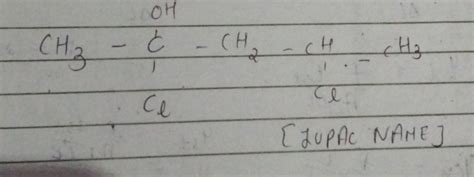 OH
CH3 - C - CH2 - CH - CH3
Cl Cl
[IUPAC NAME]